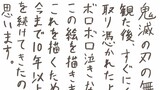 鬼滅の刃の無
観た後、すぐに
取り憑かれたよ
ボロボロ泣きな
この絵を描きま
これを描くため
今まで10年以上
を続けてきたの
思います。